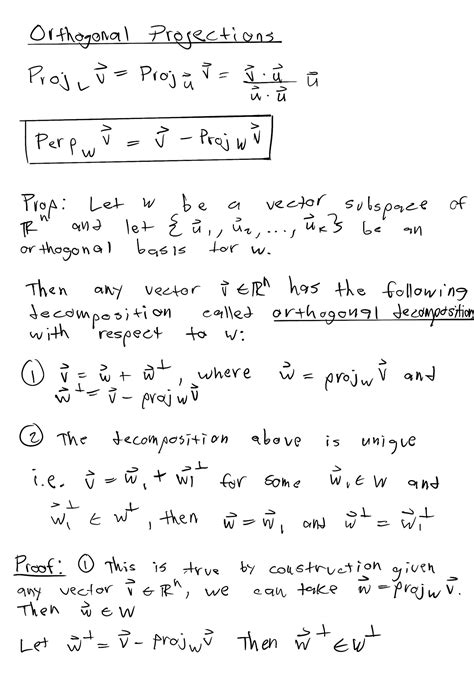 Orthogonal Projections
Proj_L v⃗ = Proj_u⃗ v⃗ = (v⃗ · u⃗)/(u⃗ · u⃗) u⃗
Perp_W v⃗ = v⃗ - Proj_W v⃗
Prop: Let W be a vector subspace of
ℝⁿ and let {u⃗₁, u⃗₂, ..., u⃗ₖ} be an
orthogonal basis for W.
Then any vector v⃗ ∈ ℝⁿ has the following
decomposition called orthogonal decomposition
with respect to W:
① v⃗ = w⃗ + w⃗^⊥, where w⃗ = proj_W v⃗ and
w⃗^⊥ = v⃗ - proj_W v⃗
② The decomposition above is unique
i.e. v⃗ = w⃗₁ + w⃗₁^⊥ for some w⃗₁ ∈ W and
w⃗₁^⊥ ∈ W^⊥, then w⃗ = w⃗₁ and w⃗^⊥ = w⃗₁^⊥
Proof: ① This is true by construction given
any vector v⃗ ∈ ℝⁿ, we can take w⃗ = proj_W v⃗.
Then w⃗ ∈ W
Let w⃗^⊥ = v⃗ - proj_W v⃗ Then w⃗^⊥ ∈ W^⊥